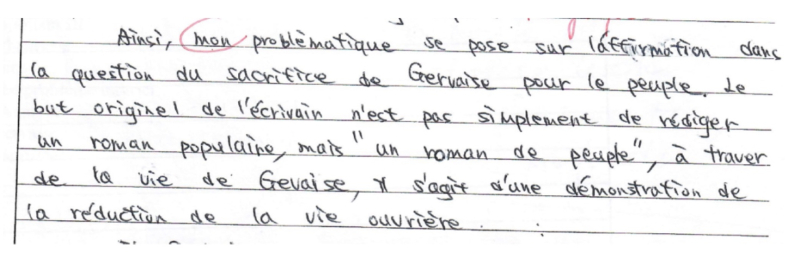 Ainsi, mon problèmatique se pose sur l'affirmation dans
la question du sacrifice de Gervaise pour le peuple. Le
but originel de l'écrivain n'est pas simplement de rédiger
un roman populaire, mais "un roman de peuple", à traver
de la vie de Gevaise, s'agit d'une démonstration de
la réduction de la vie ouvrière.